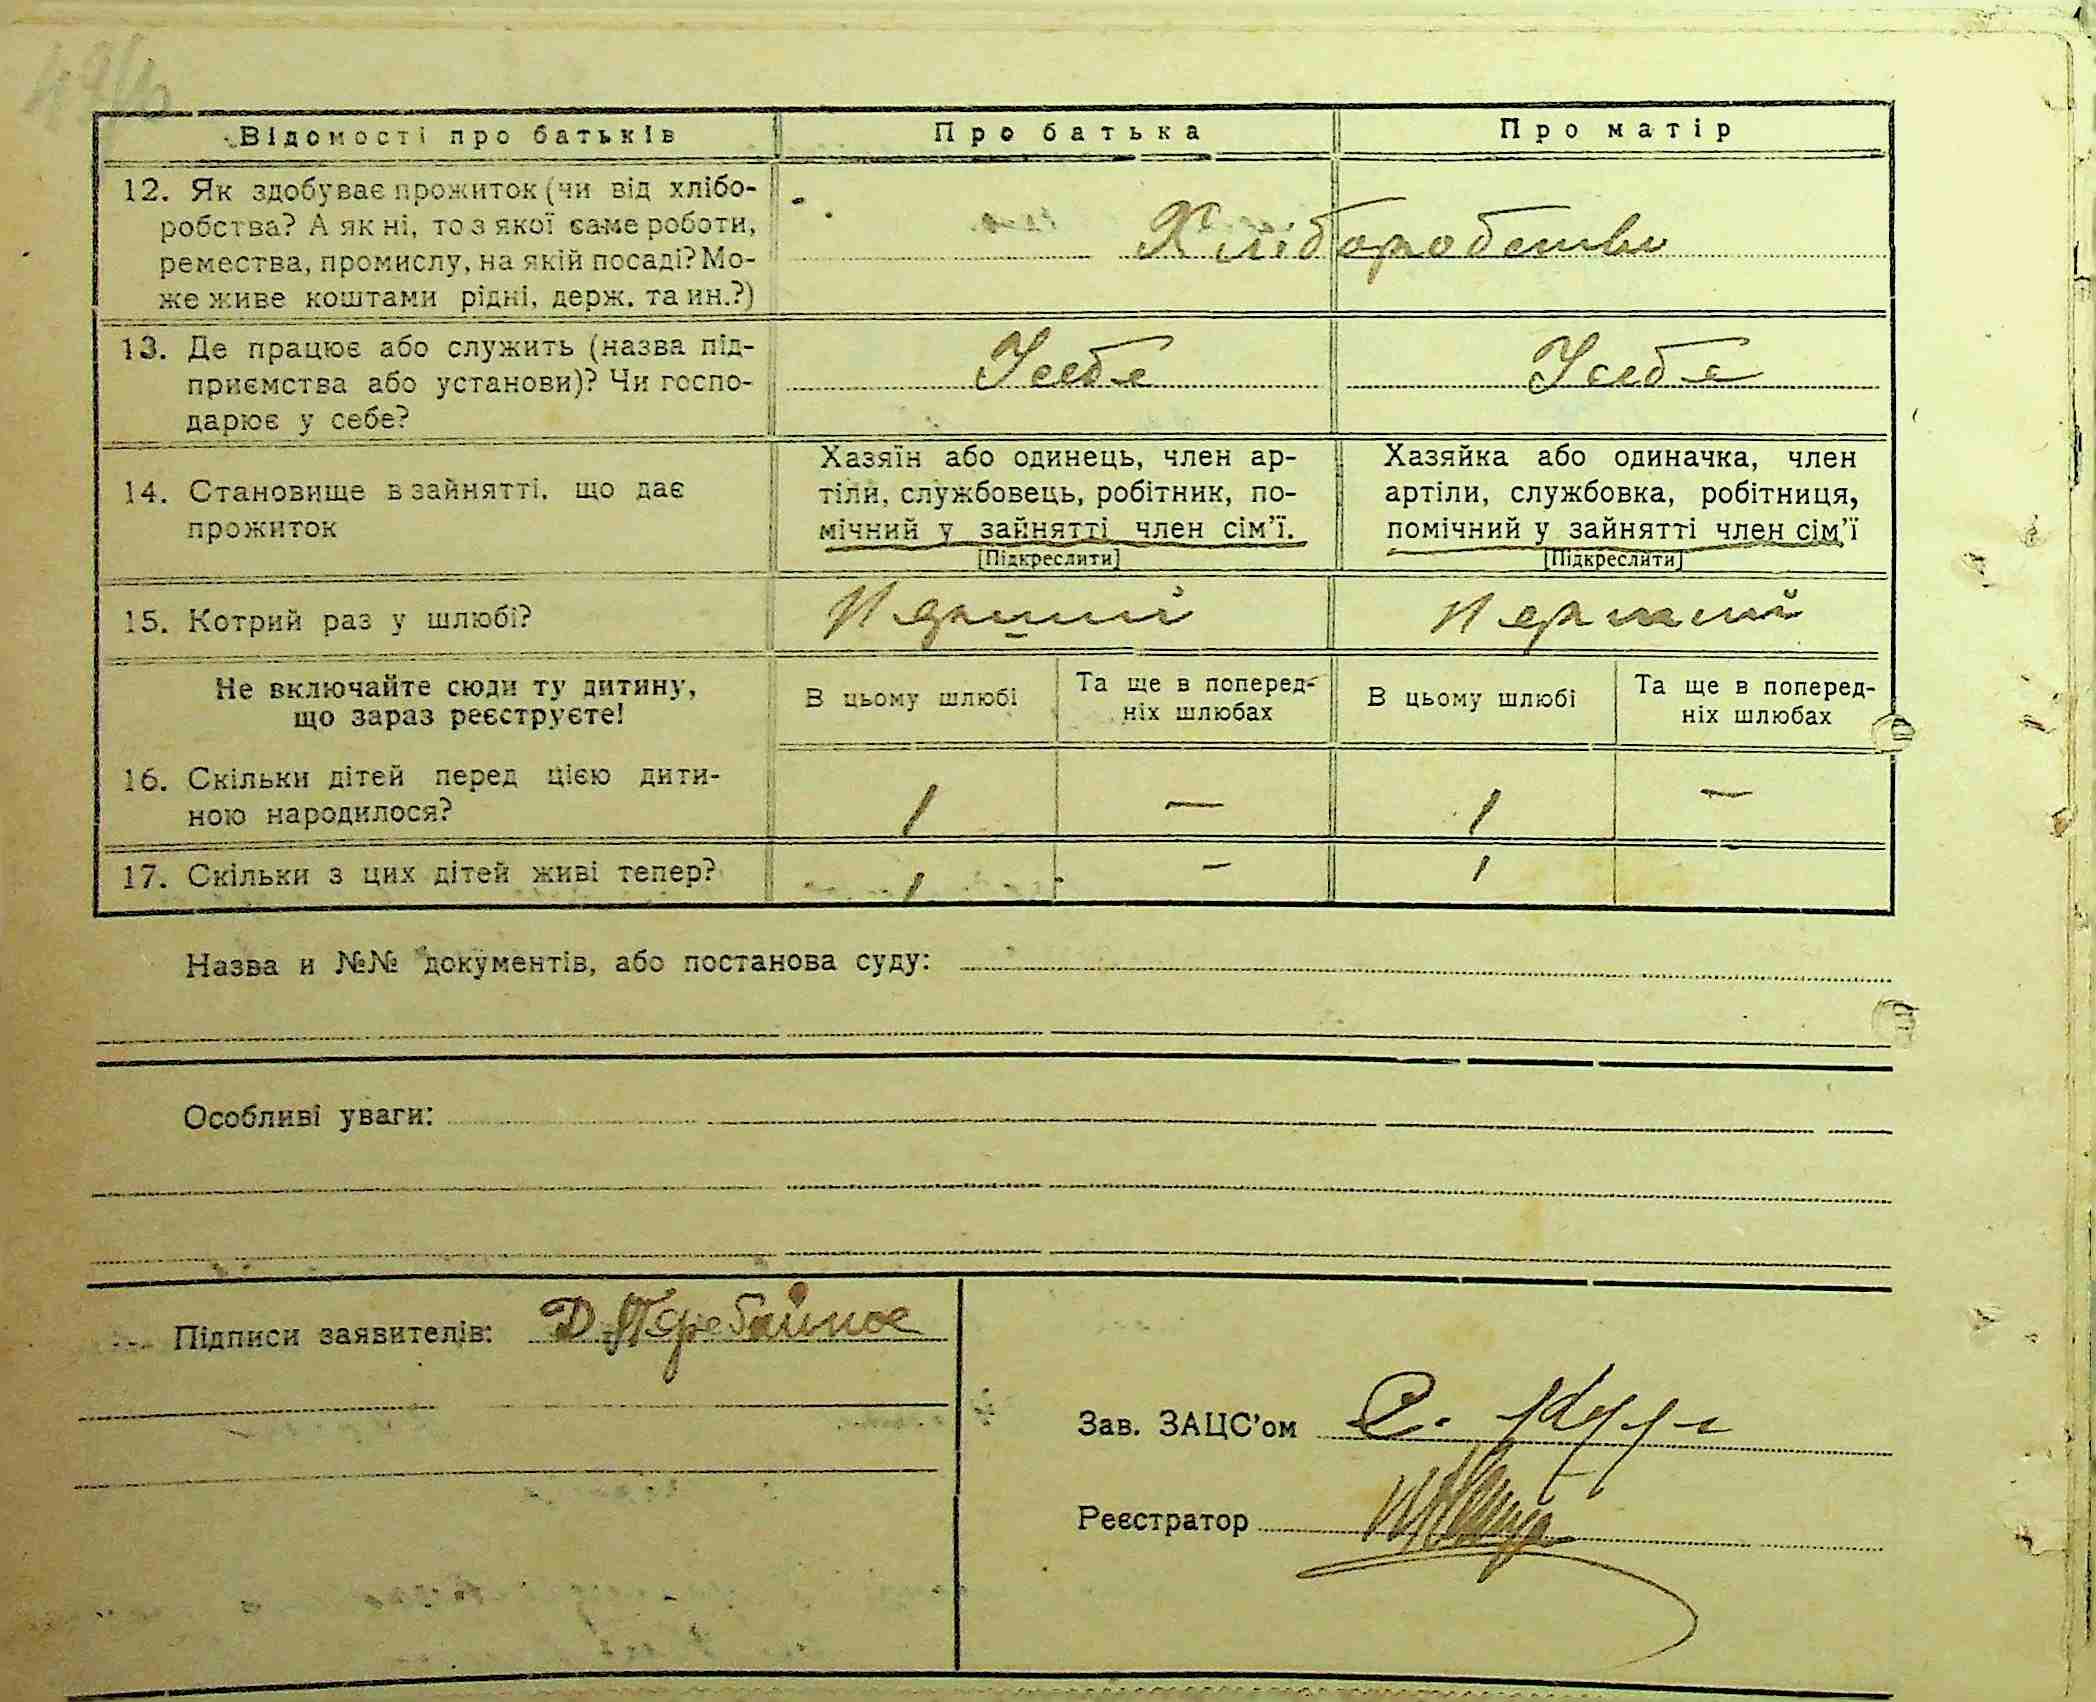 Відомості про батьків
Про батька
Про матір
12. Як здобуває прожиток (чи від хлібо-
робства? А як ні, то з якої саме роботи,
ремества, промислу, на якій посаді? Мо-
же живе коштами рідні, держ. та ин.?)
Хліборобство
13. Де працює або служить (назва під-
приємства або установи)? Чи госпо-
дарює у себе?
У себе
У себе
14. Становище в зайнятті, що дає
прожиток
Хазяїн або одинець, член ар-
тіли, службовець, робітник, по-
мічний у зайнятті член сім'ї.
[Підкреслити]
Хазяйка або одиначка, член
артіли, службовка, робітниця,
помічний у зайнятті член сім'ї
[Підкреслити]
15. Котрий раз у шлюбі?
Перший
Перший
Не включайте сюди ту дитину,
що зараз реєструєте!
В цьому шлюбі
Та ще в поперед-
ніх шлюбах
В цьому шлюбі
Та ще в поперед-
ніх шлюбах
16. Скільки дітей перед цією дити-
ною народилося?
1 — 1 —
17. Скільки з цих дітей живі тепер?
1 - 1
Назва и №№ документів, або постанова суду:
Особливі уваги:
Підписи заявителів: Д. Перебайнос
Зав. ЗАЦС'ом
Реєстратор